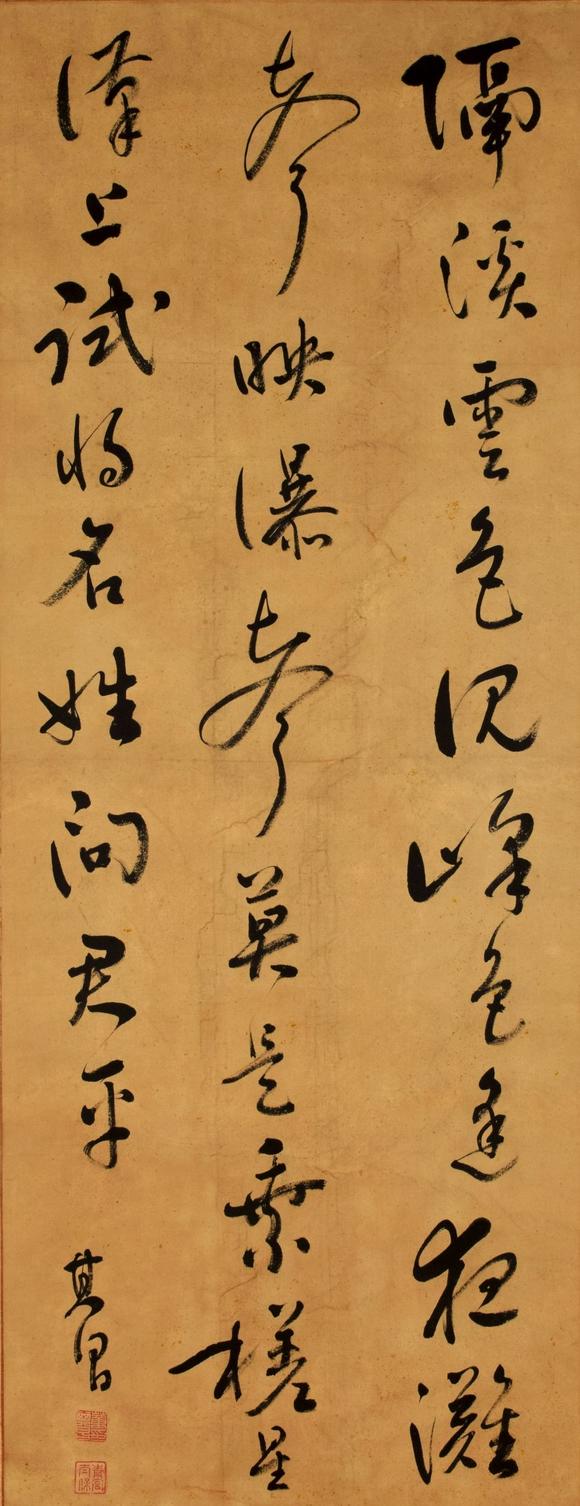 隔溪雲色沉峰色逢夜灘
聲映瀑聲莫是乘槎星
漢上試將名姓問君平
其昌